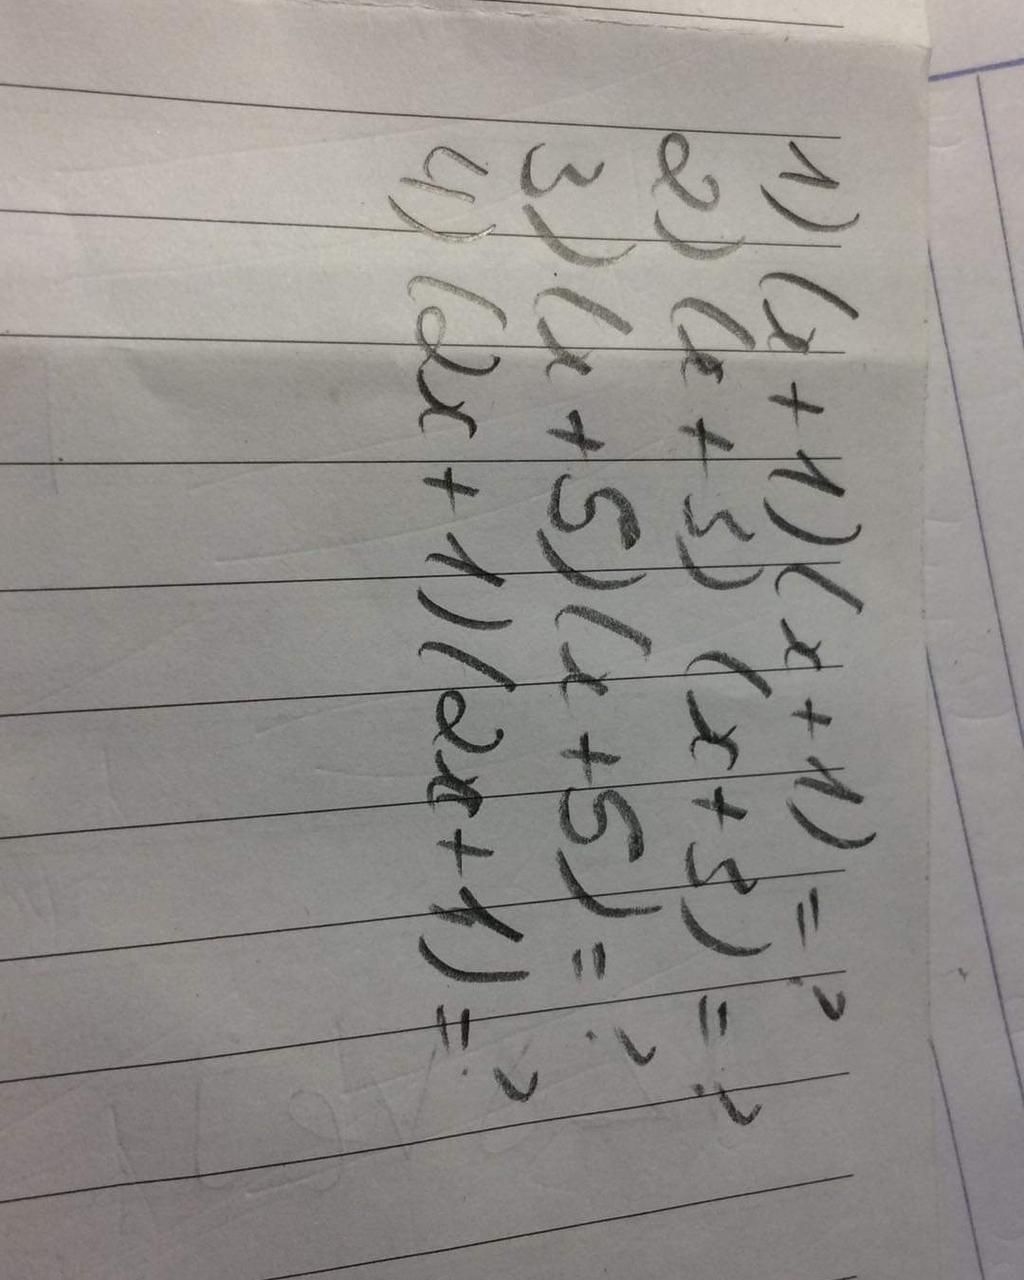 1) (x + 1)(x + 1) = ?
2) (x + 3) (x + 3) = ?
3) (x + 5)(x + 5) = ?
4) (2x + 1)(2x + 1) = ?